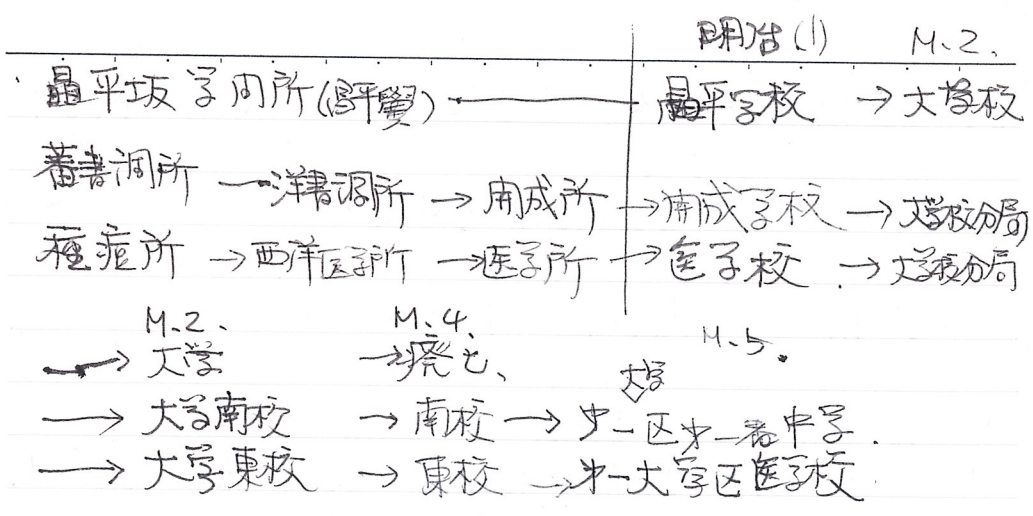 明治(1) M.2.
昌平坂学问所(昌平黌) 昌平学校 → 大学校
蕃書調所 → 洋書調所 → 開成所 → 開成学校 → 大学校分局
種痘所 → 西洋医学所 → 医学所 → 医学校 → 大学校分局
M.2. M.4. M.5.
→ 大学 → 廃止、
大学
→ 大学南校 → 南校 → 才一区才一番中学.
→ 大学東校 → 東校 → 才一大学区医学校